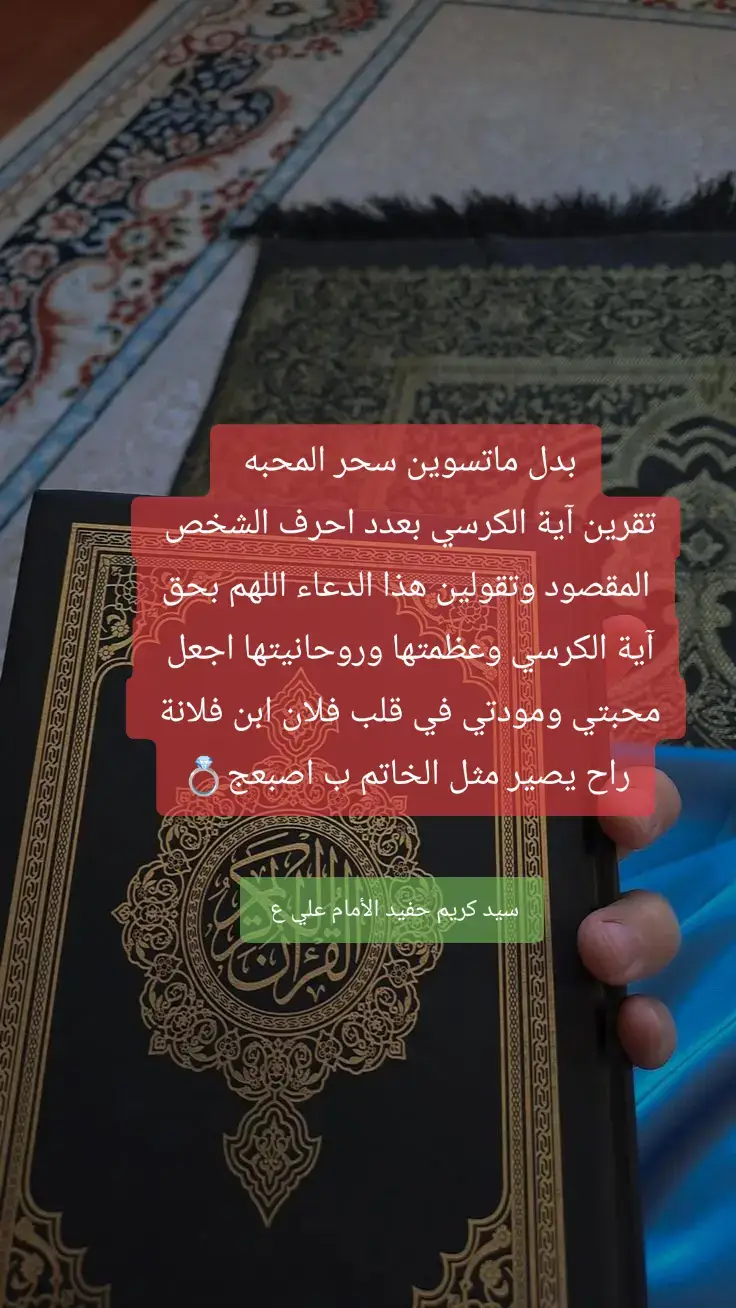 بدل ماتسوين سحر المحبه
تقرين آية الكرسي بعدد احرف الشخص
المقصود وتقولين هذا الدعاء اللهم بحق
آية الكرسي وعظمتها وروحانيتها اجعل
محبتي ومودتي في قلب فلان ابن فلانة
راح يصير مثل الخاتم ب اصبعج💍
سيد كريم حفيد الأمام علي ع
القرآن الكريم